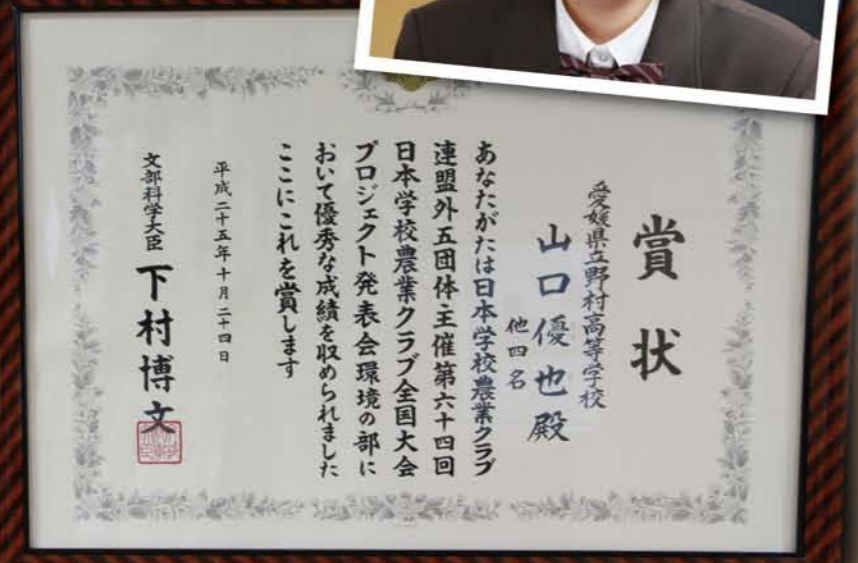 賞状
愛媛県立野村高等学校
山口優也殿
他四名
あなたがたは日本学校農業クラブ
連盟外五団体主催第六十四回
日本学校農業クラブ全国大会
プロジェクト発表会環境の部に
おいて優秀な成績を収められました
ここにこれを賞します
平成二十五年十月二十四日
文部科学大臣 下村博文